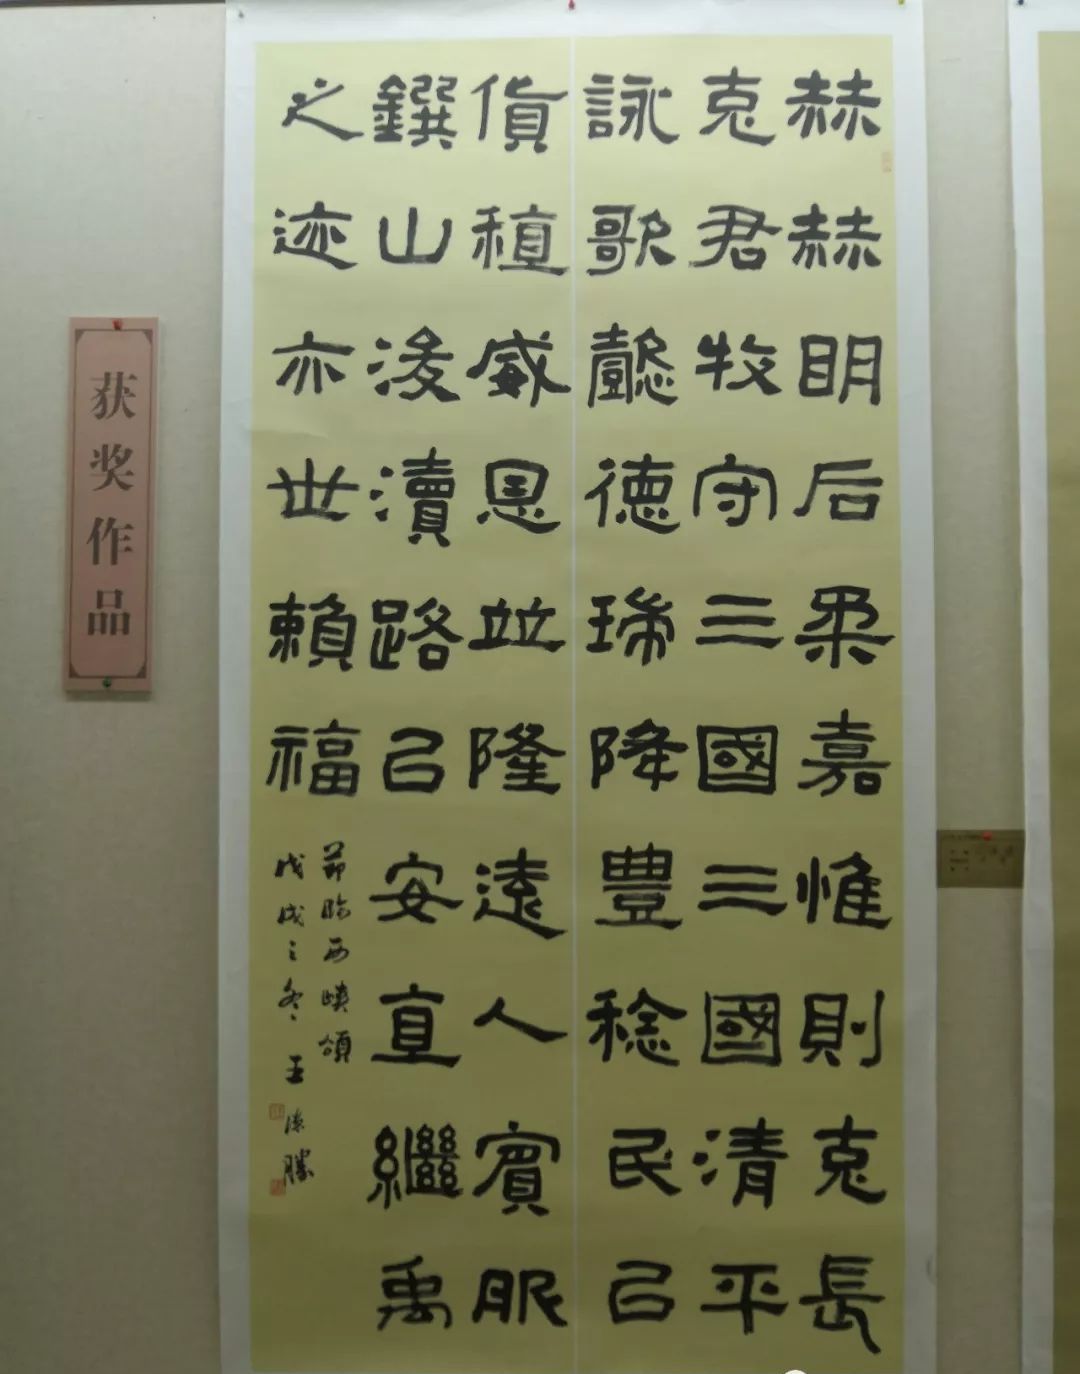 赫赫眀后柔嘉惟則克長
克君牧守三國三國清平
詠歌懿德瑞降豊稔民㠯
貨稙威恩竝隆遠人賓服
鐉山浚瀆路㠯安直繼禹
之迹亦世賴福
節臨西峽頌
戊戌之冬 王
获奖作品